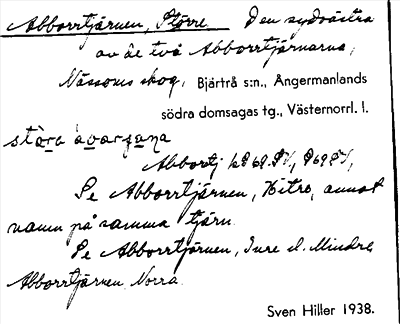 Abborrtjärnen, Större. Den sydvästra
av de två Abborrtjärnarna,
Nässoms skog, Bjärtrå s:n., Ångermanlands
södra domsagas tg., Västernorrl. l.
Abbortj
Se Abborrtjärnen, Yttre, annat
namn på samma tjärn.
Se Abborrtjärnen, Inre el. Mindre
Abborrtjärnen Norra.
Sven Hiller 1938.